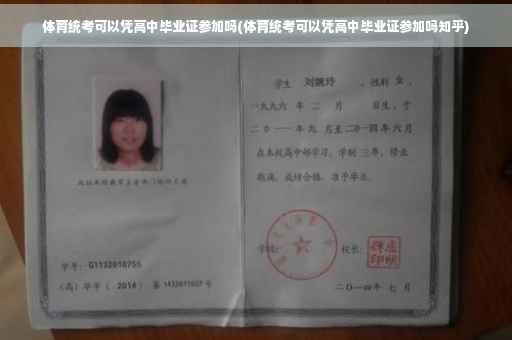 体育统考可以凭高中毕业证参加吗(体育统考可以凭高中毕业证参加吗知乎)
学生 刘婉玲 ，性别 女 ，
一九九六 年 二 月 日生，于
二〇一一 年 九 月至二〇一四 年 六 月
在本校高中部学习，学制 三 年，修业
期满，成绩合格，准予毕业。
学校：
校长：
二〇一四年 七 月
学号： G1132010755
(高) 毕字 ( 2014 ) 第 1432011027 号